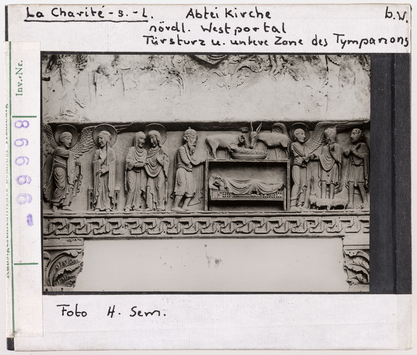 La Charité-s.-L. Abtei Kirche b.W.
nördl. Westportal
Türsturz u. untere Zone des Tympanons
Inv.-Nr.
99988
Foto H. Sem.